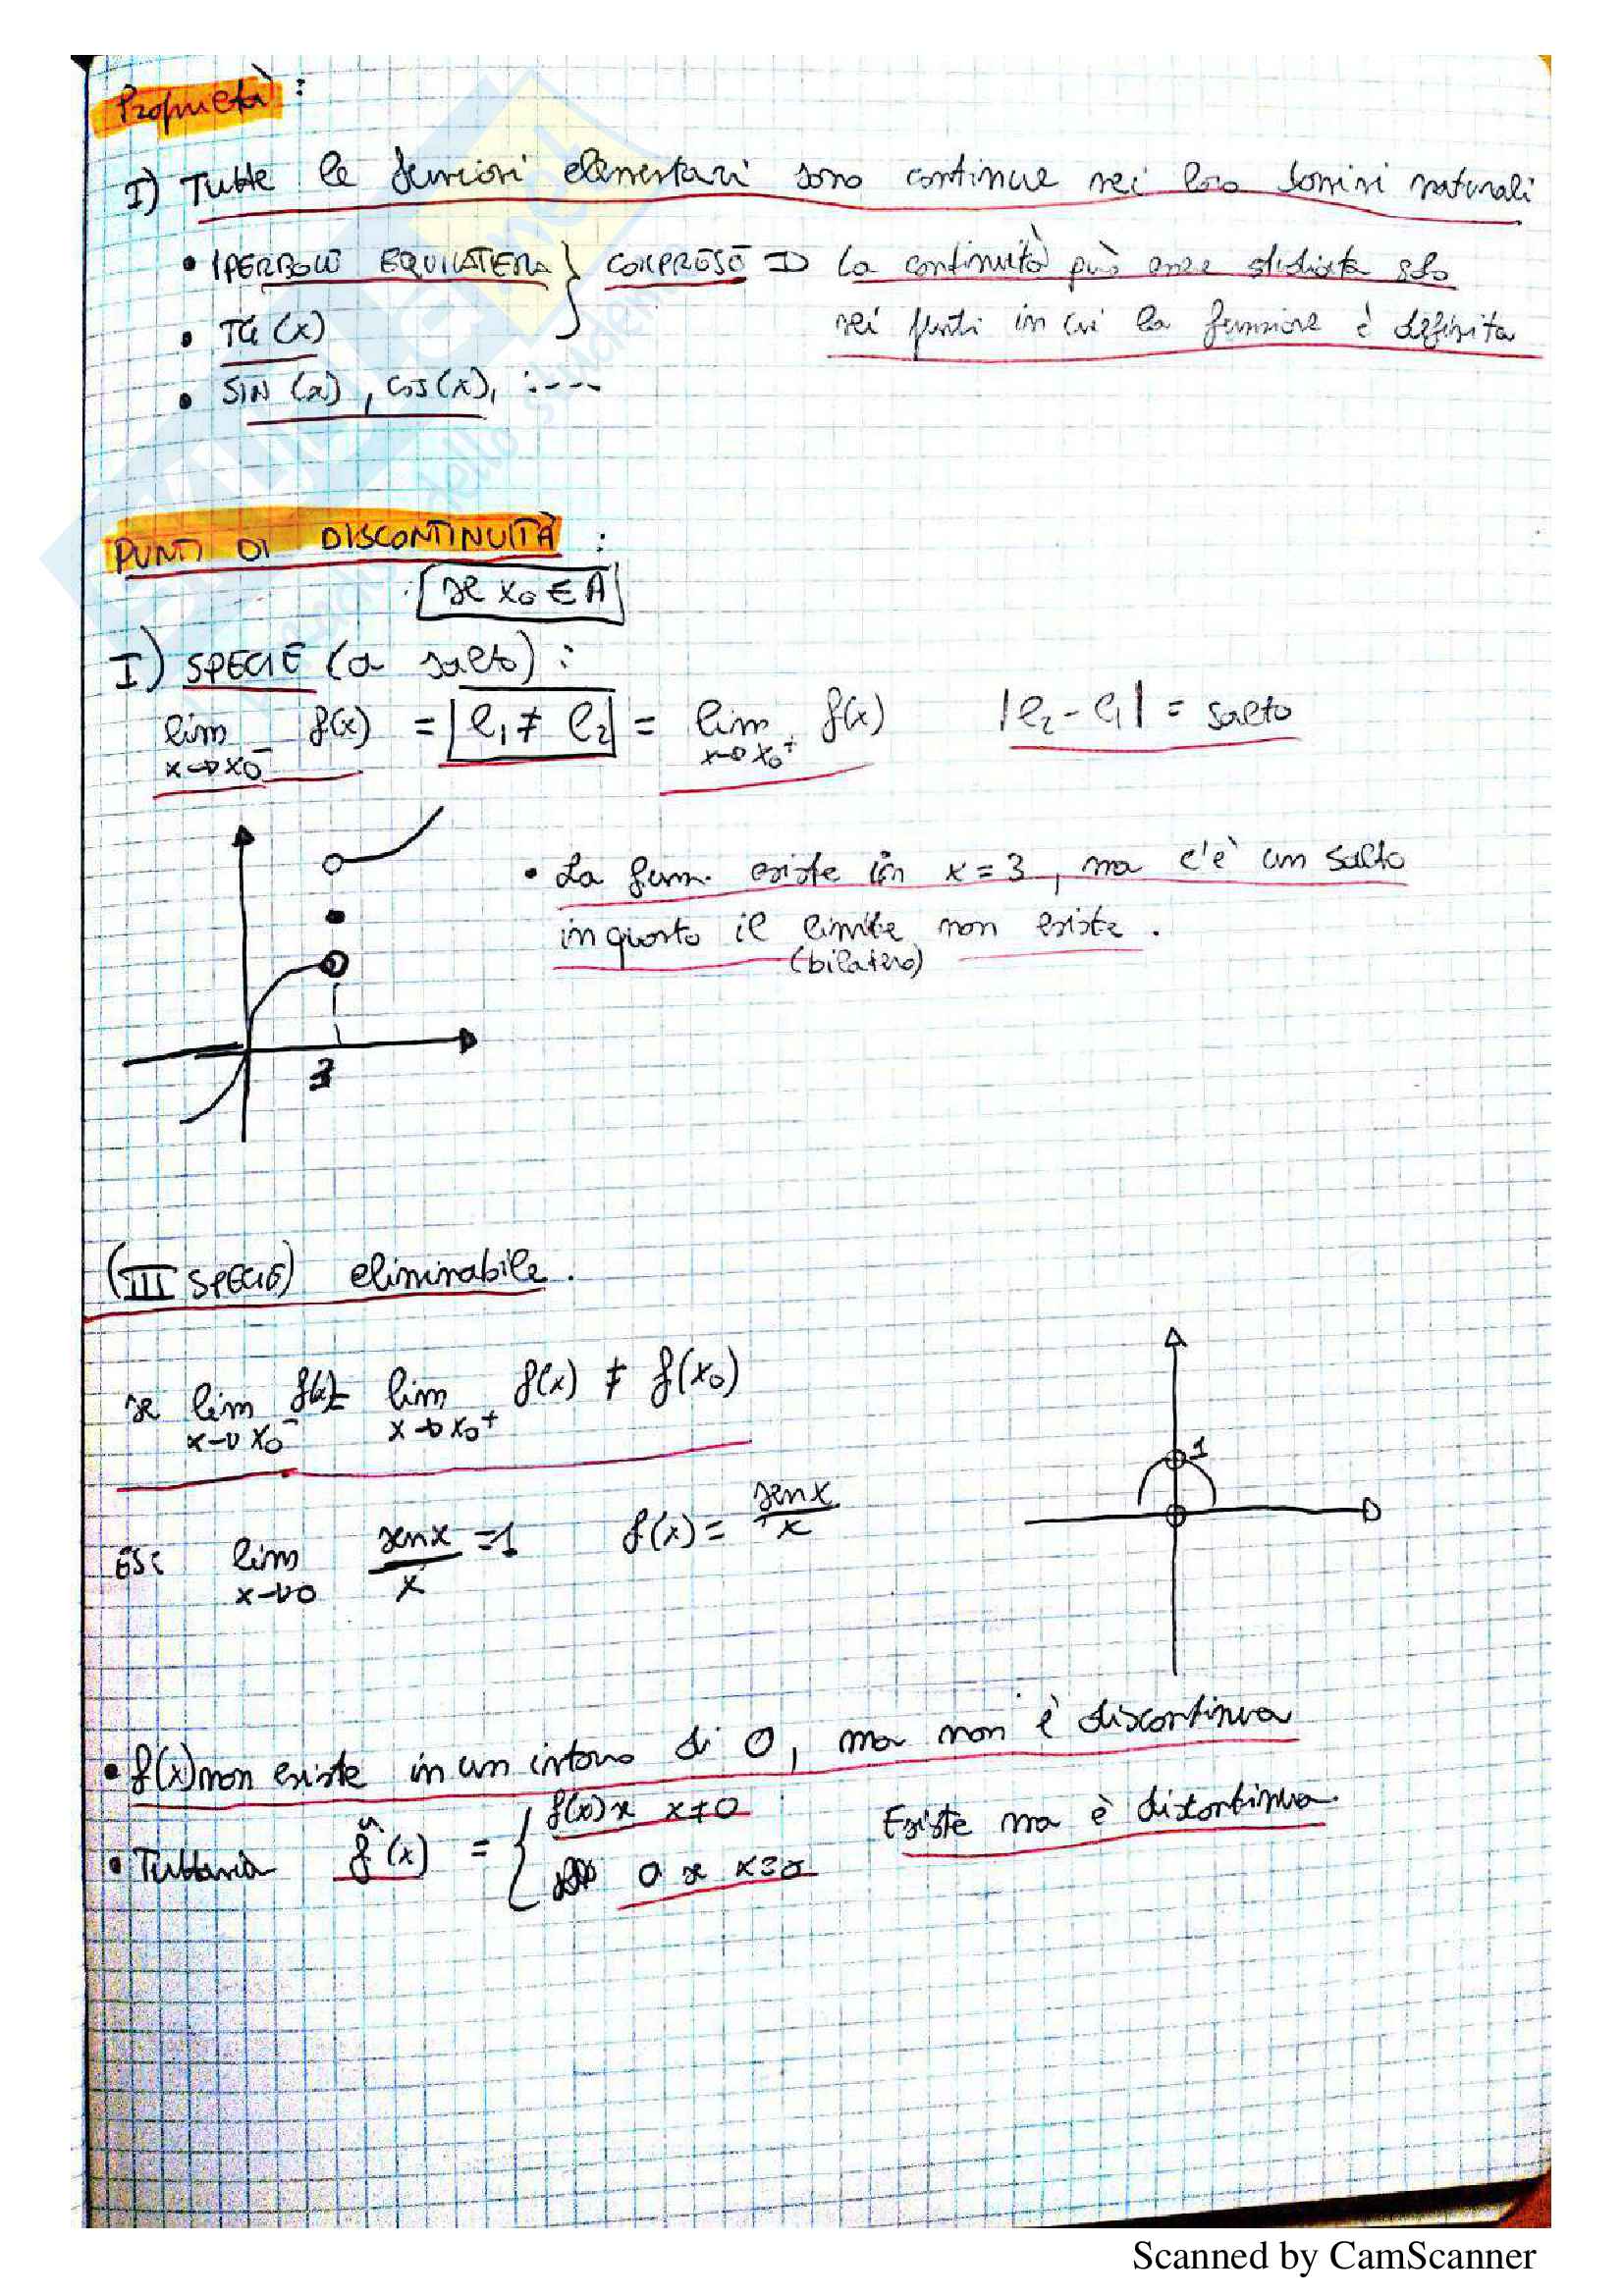 Proprietà:
I) Tutte le funzioni elementari sono continue nei loro domini naturali
• IPERBOLE EQUILATERA } COMPRESO => La continuità può essere studiata solo
• TG (x) nei punti in cui la funzione è definita
• SIN (x), COS(x), ....
PUNTI DI DISCONTINUITÀ:
se x₀ ∈ A
I) SPECIE (a salto):
lim x→x₀⁻ f(x) = l₁ ≠ l₂ = lim x→x₀⁺ f(x) |l₂ - l₁| = salto
• La funz. esiste in x = 3, ma c'è un salto
in quanto il limite non esiste.
(bilatero)
3
(III SPECIE) eliminabile.
se lim x→x₀⁻ f(x) = lim x→x₀⁺ f(x) ≠ f(x₀)
1
ES: lim x→0 senx/x = 1 f(x) = senx/x
• f(x) non esiste in un intorno di 0, ma non è discontinua
• Tuttavia f̃(x) = { f(x) se x≠0 Esiste ma è discontinua.
0 se x=0
Scanned by CamScanner